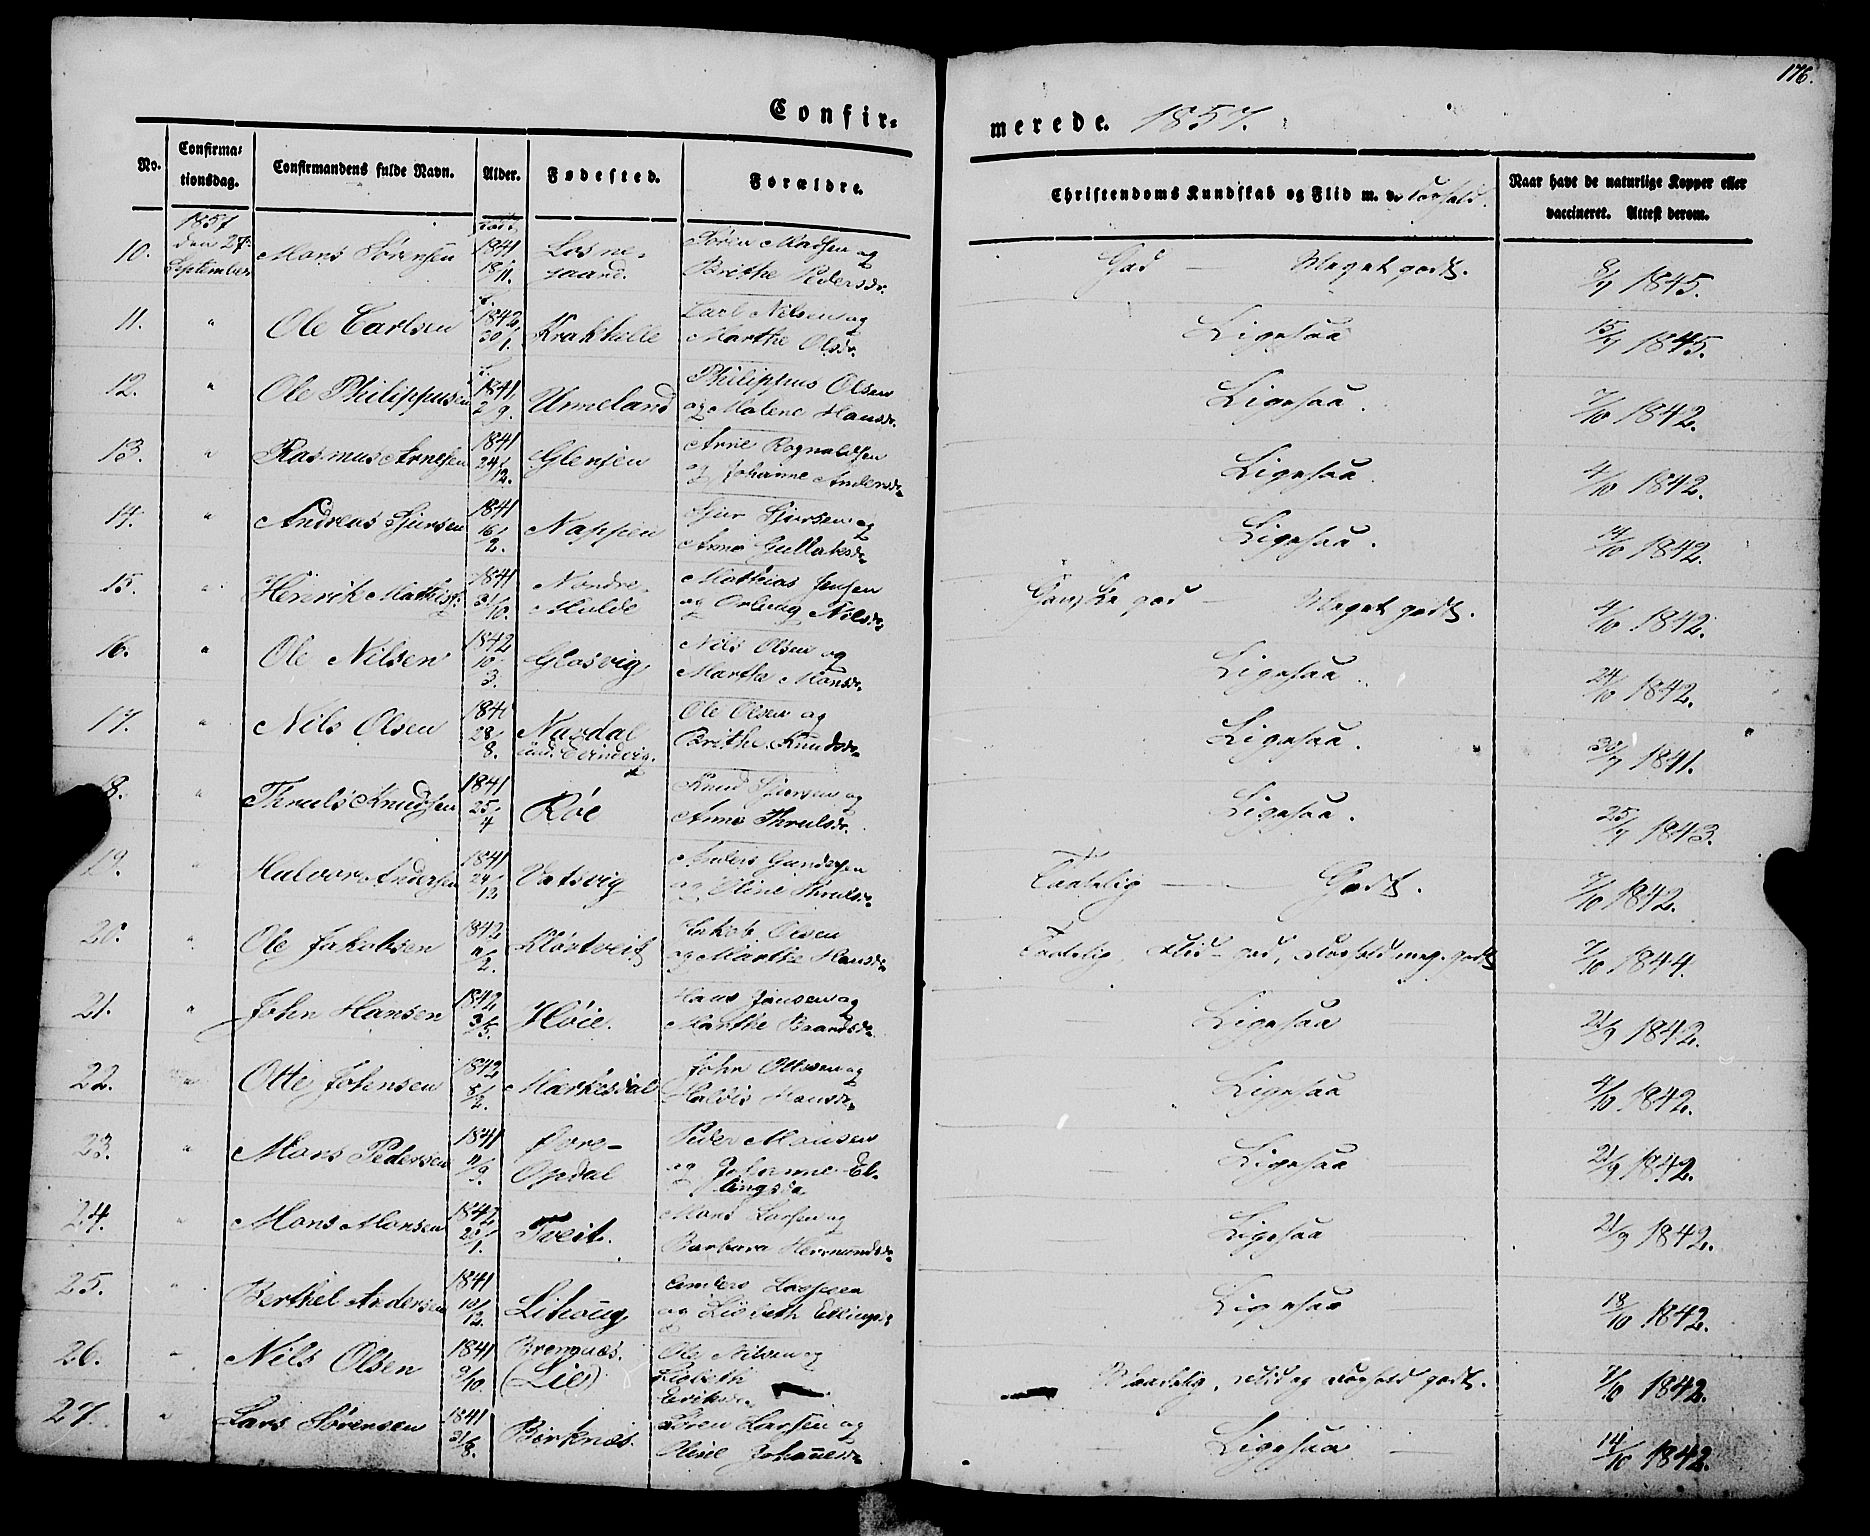 176.
Confir-
merede. 1857.
No.
Confirma-
tionsdag.
Confirmandens fulde Navn.
Alder.
Fødested.
Forældre.
Christendoms Kundskab og Flid m. v. Forhold.
Naar have de naturlige Kopper eller
vaccineret. Attest derom.
10. 1857 den 27. September Mons Sørensen født 1841 18/11. Losne- gaard. Søren Madsen og Brithe Pedersdr. God — Meget godt. 8/7 1845.
11. " Ole Carlsen f. 1842 30/1. Krakhelle Carl Nilsen og Marthe Olsdr. Ligesaa 15/7 1845.
12. " Ole Philippusen f. 1841 2/9. Ummeland Philippus Olsen og Malene Hansdr. Ligesaa. 7/10 1842.
13. " Rasmus Arnesen 1841 24/12. Glenjen Arne Rognaldsen og Johanne Andersdr. Ligesaa. 4/10 1842.
14. " Andreas Sjursen 1841 16/2. Nappen Sjur Sjursen og Anna Gullaksdr. Ligesaa. 14/10 1842.
15. " Henrik Mathiss. 1841 31/10. Nordre- Mulde Mathias Jensen og Nilsdr. Ganske god — Meget godt. 4/10 1842.
16. " Ole Nilsen 1842 10/3. Glosvig Nils Olsen og Marthe Monsdr. Ligesaa. 24/10 1842.
17. " Nils Olsen 28/8. Nusdal Evindvig. Ole Olsen og Brithe Knudsdr. Ligesaa. 30/7 1841.
18. " Thruls Knudsen 1841 25/4 Röe Knud Sjursen og Anna Thrulsdr. Ligesaa. 25/7 1843.
19. " Halvor Andersen 1841 24/12 Vatsvig Anders Gundersen og Oline Thrulsdr. Taalelig — Godt. 7/10 1842.
20. " Ole Jakobsen 1842 /2. Kløvtveit Jakob Olsen og Marthe Hansdr. Taalelig, Flid god, Forhold meg. godt 7/10 1844.
21. " John Hansen 1842 3/5. Høie. Hans Jansen og Marthe Brandsdr. Ligesaa 21/9 1842.
22. " Otte Johnsen 1842 8/2. Mærkesdal John Ottesen og Haldis Hansdr. Ligesaa 4/10 1842.
23. " Mons Pedersen 1841 11/9. Øvre- Opdal Peder Monsen og Johanne El- lingsdr. Ligesaa 21/9 1842.
24. " Mons Monsen 1842 /1. Tveit. Mons Larsen og Barbara Hermundsdr. Ligesaa 21/9 1842.
25. " Berthel Andersen 1841 10/12. Lihoug Anders Larsen og Lisbeth Ellingsdr. Ligesaa 18/10 1842.
26. " Nils Olsen 1841 9/10. Bremnæs. (Lie) Ole Nilsen og Lisbeth Eriksdr. Maadelig, Flid og Forhold godt. 7/10 1842.
27. " Lars Sørensen 1841 21/8. Birknæs. Søren Larsen og Oline Johannesdr. Ligesaa. 14/10 1842.